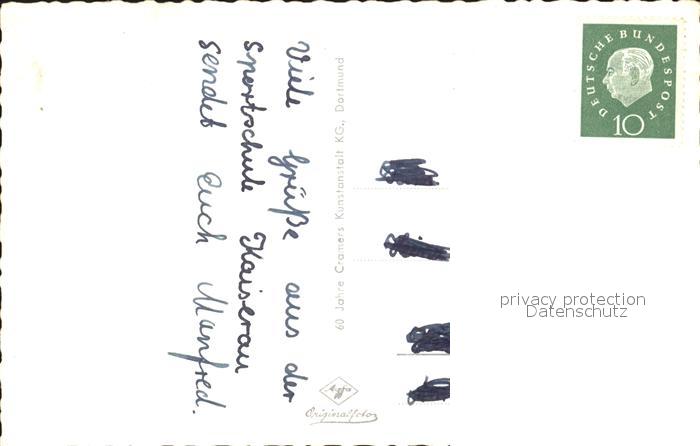 Viele Grüße aus der
Sportschule Kaiserau
sendet Euch Manfred.
60 Jahre Cramers Kunstanstalt KG., Dortmund
Agfa
Originalfoto
DEUTSCHE BUNDESPOST
10
privacy protection
Datenschutz